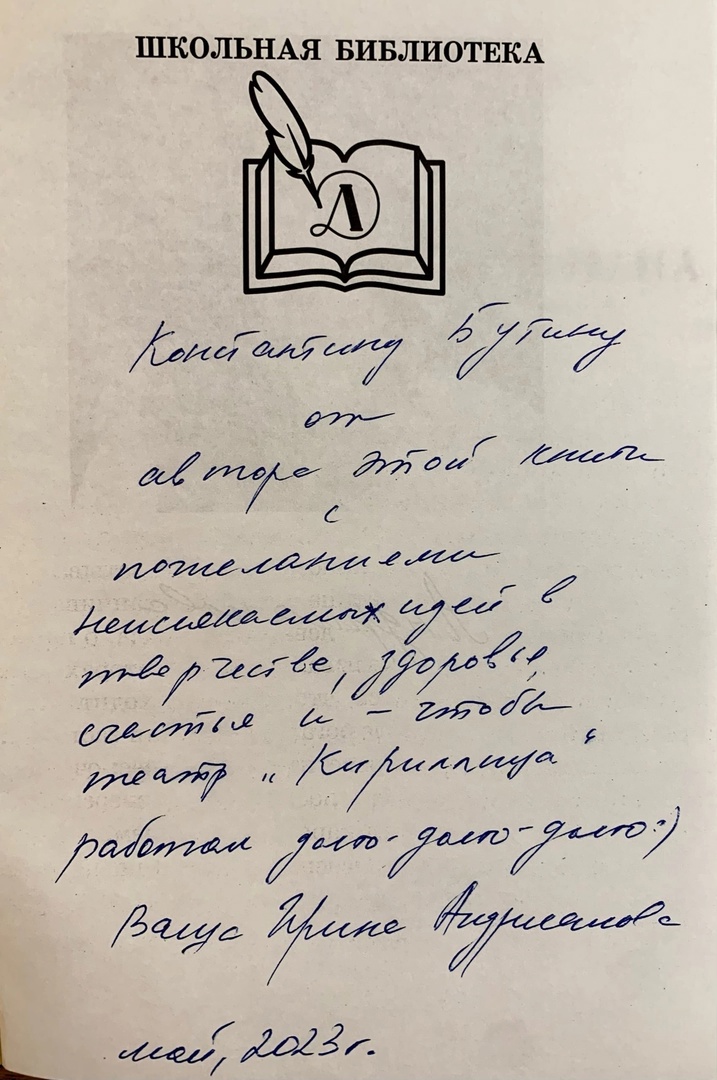 ШКОЛЬНАЯ БИБЛИОТЕКА
Л
Константину Бутину
от
автора этой книги
с
пожеланиями
неиссякаемых идей в
творчестве, здоровья,
счастья и – чтобы
театр „Кириллица“
работал долго-долго-долго:)
Ваша Ирина Андрианова
май, 2023г.